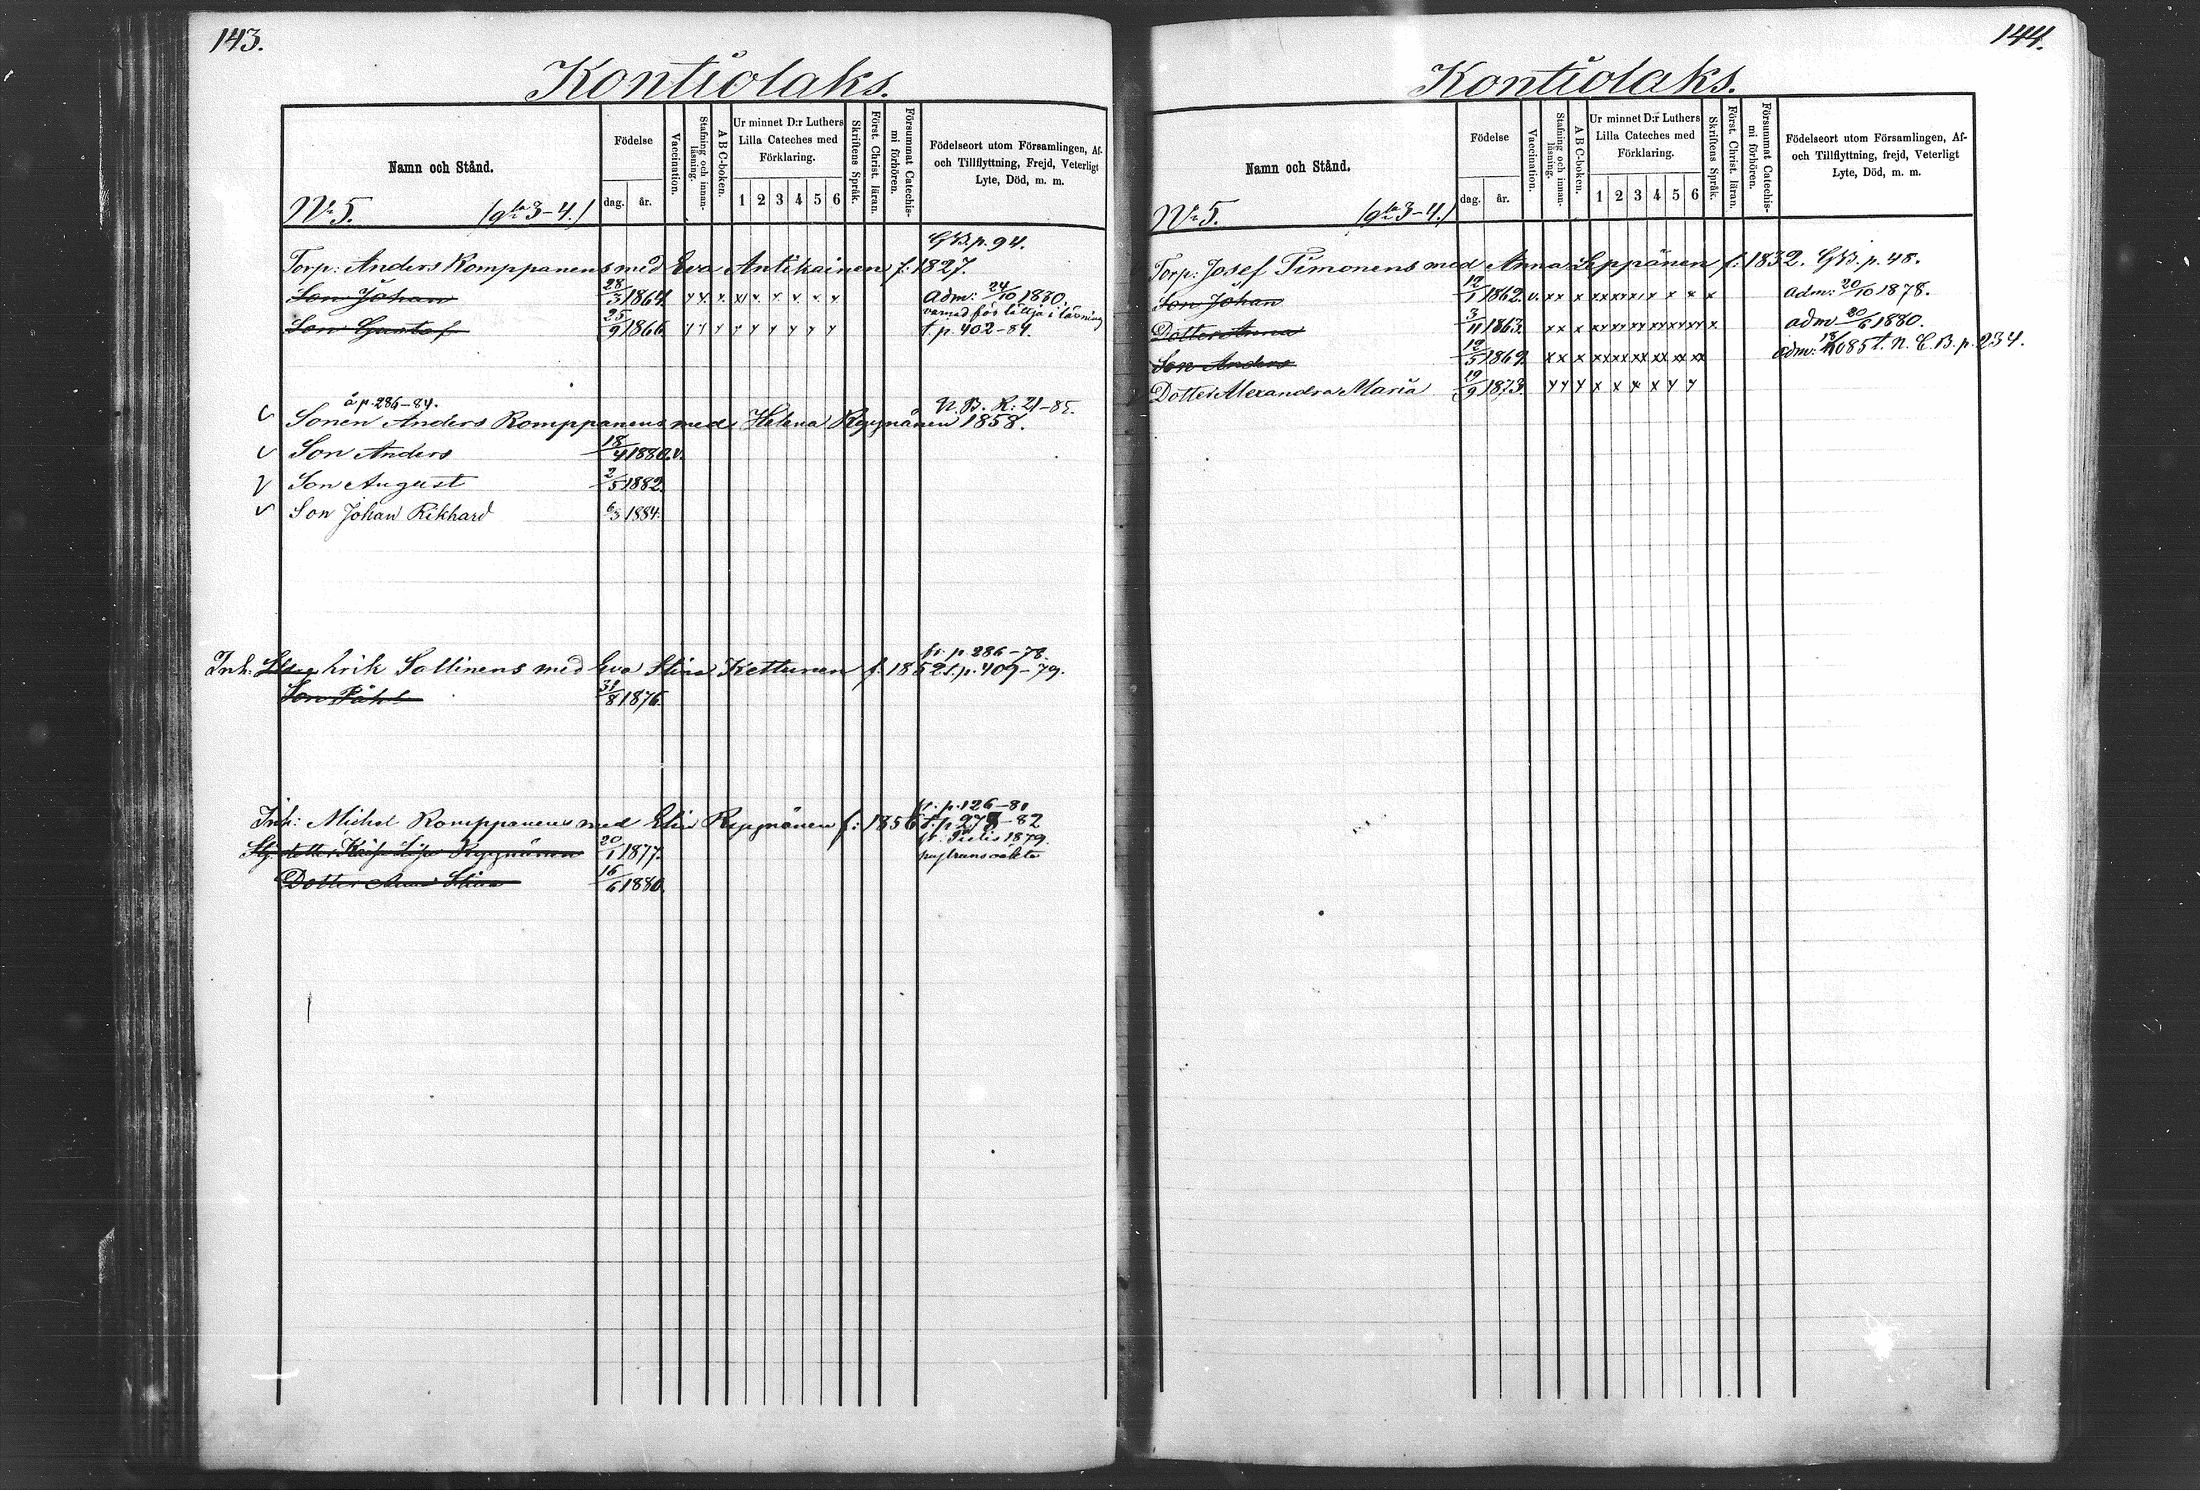 143.
Kontiolaks.
Namn och Stånd.
Födelse
dag.
år.
Vaccination.
Stafning och innanläsning.
A B C-boken.
Ur minnet D:r Luthers Lilla Cateches med Förklaring.
1 2 3 4 5 6
Skriftens Språk.
Först. Christ. läran.
Försummat Catechismi förhören.
Födelseort utom Församlingen, Af- och Tillflyttning, Frejd, Veterligt Lyte, Död, m. m.
N:o 5. 3-4.)
GB. p. 94.
Torp: Anders Romppanens med Eva Antikainen f: 1827.
Son Johan 28/3 1864. x x x x x x x x x Adm: 24/10 1880.
Son Gustaf 25/9 1866 x x x x x x x x x t. p. 402-84.
å p. 286-84. N. B. R: 21-85.
v Sonen Anders Romppanens med Helena Ryynänen 1858.
v Son Anders 18/4 1880. v.
v Son August 2/5 1882.
v Son Johan Rikhard 6/3 1884.
fr. p. 286-78.
Inh: Erik Sallinens med Eva Stina Kettunen f. 1852 t. p. 409-79.
Son Påhl 31/8 1876.
fr. p. 126-80
Inh: Michel Romppanens med Elin Ryynänen f: 1856 t. p. 278-82
Ryynänen 20/1 1877. fr. Pielis 1879.
Dotter Anna Stina 16/6 1880.
144.
Kontiolaks.
Namn och Stånd.
Födelse
dag.
år.
Vaccination.
Stafning och innanläsning.
A B C-boken.
Ur minnet D:r Luthers Lilla Cateches med Förklaring.
1 2 3 4 5 6
Skriftens Språk.
Först. Christ. läran.
Försummat Catechismi förhören.
Födelseort utom Församlingen, Af- och Tillflyttning, frejd, Veterligt Lyte, Död, m. m.
N:o 5. 3-4.)
Torp: Josef Timonens med Anna Leppänen f: 1832. GB. p. 48.
Son Johan 12/1 1862. v. xx x xx xx x x x x x adm: 20/10 1878.
Dotter Anna 3/11 1863. xx x xx xx xx xx xx x adm 20/6 1880.
Son Anders 12/5 1869. xx x xx xx xx xx xx t. N. C. B. p. 234.
Dotter Alexandra Maria 19/9 1873. x x x x x x x x x